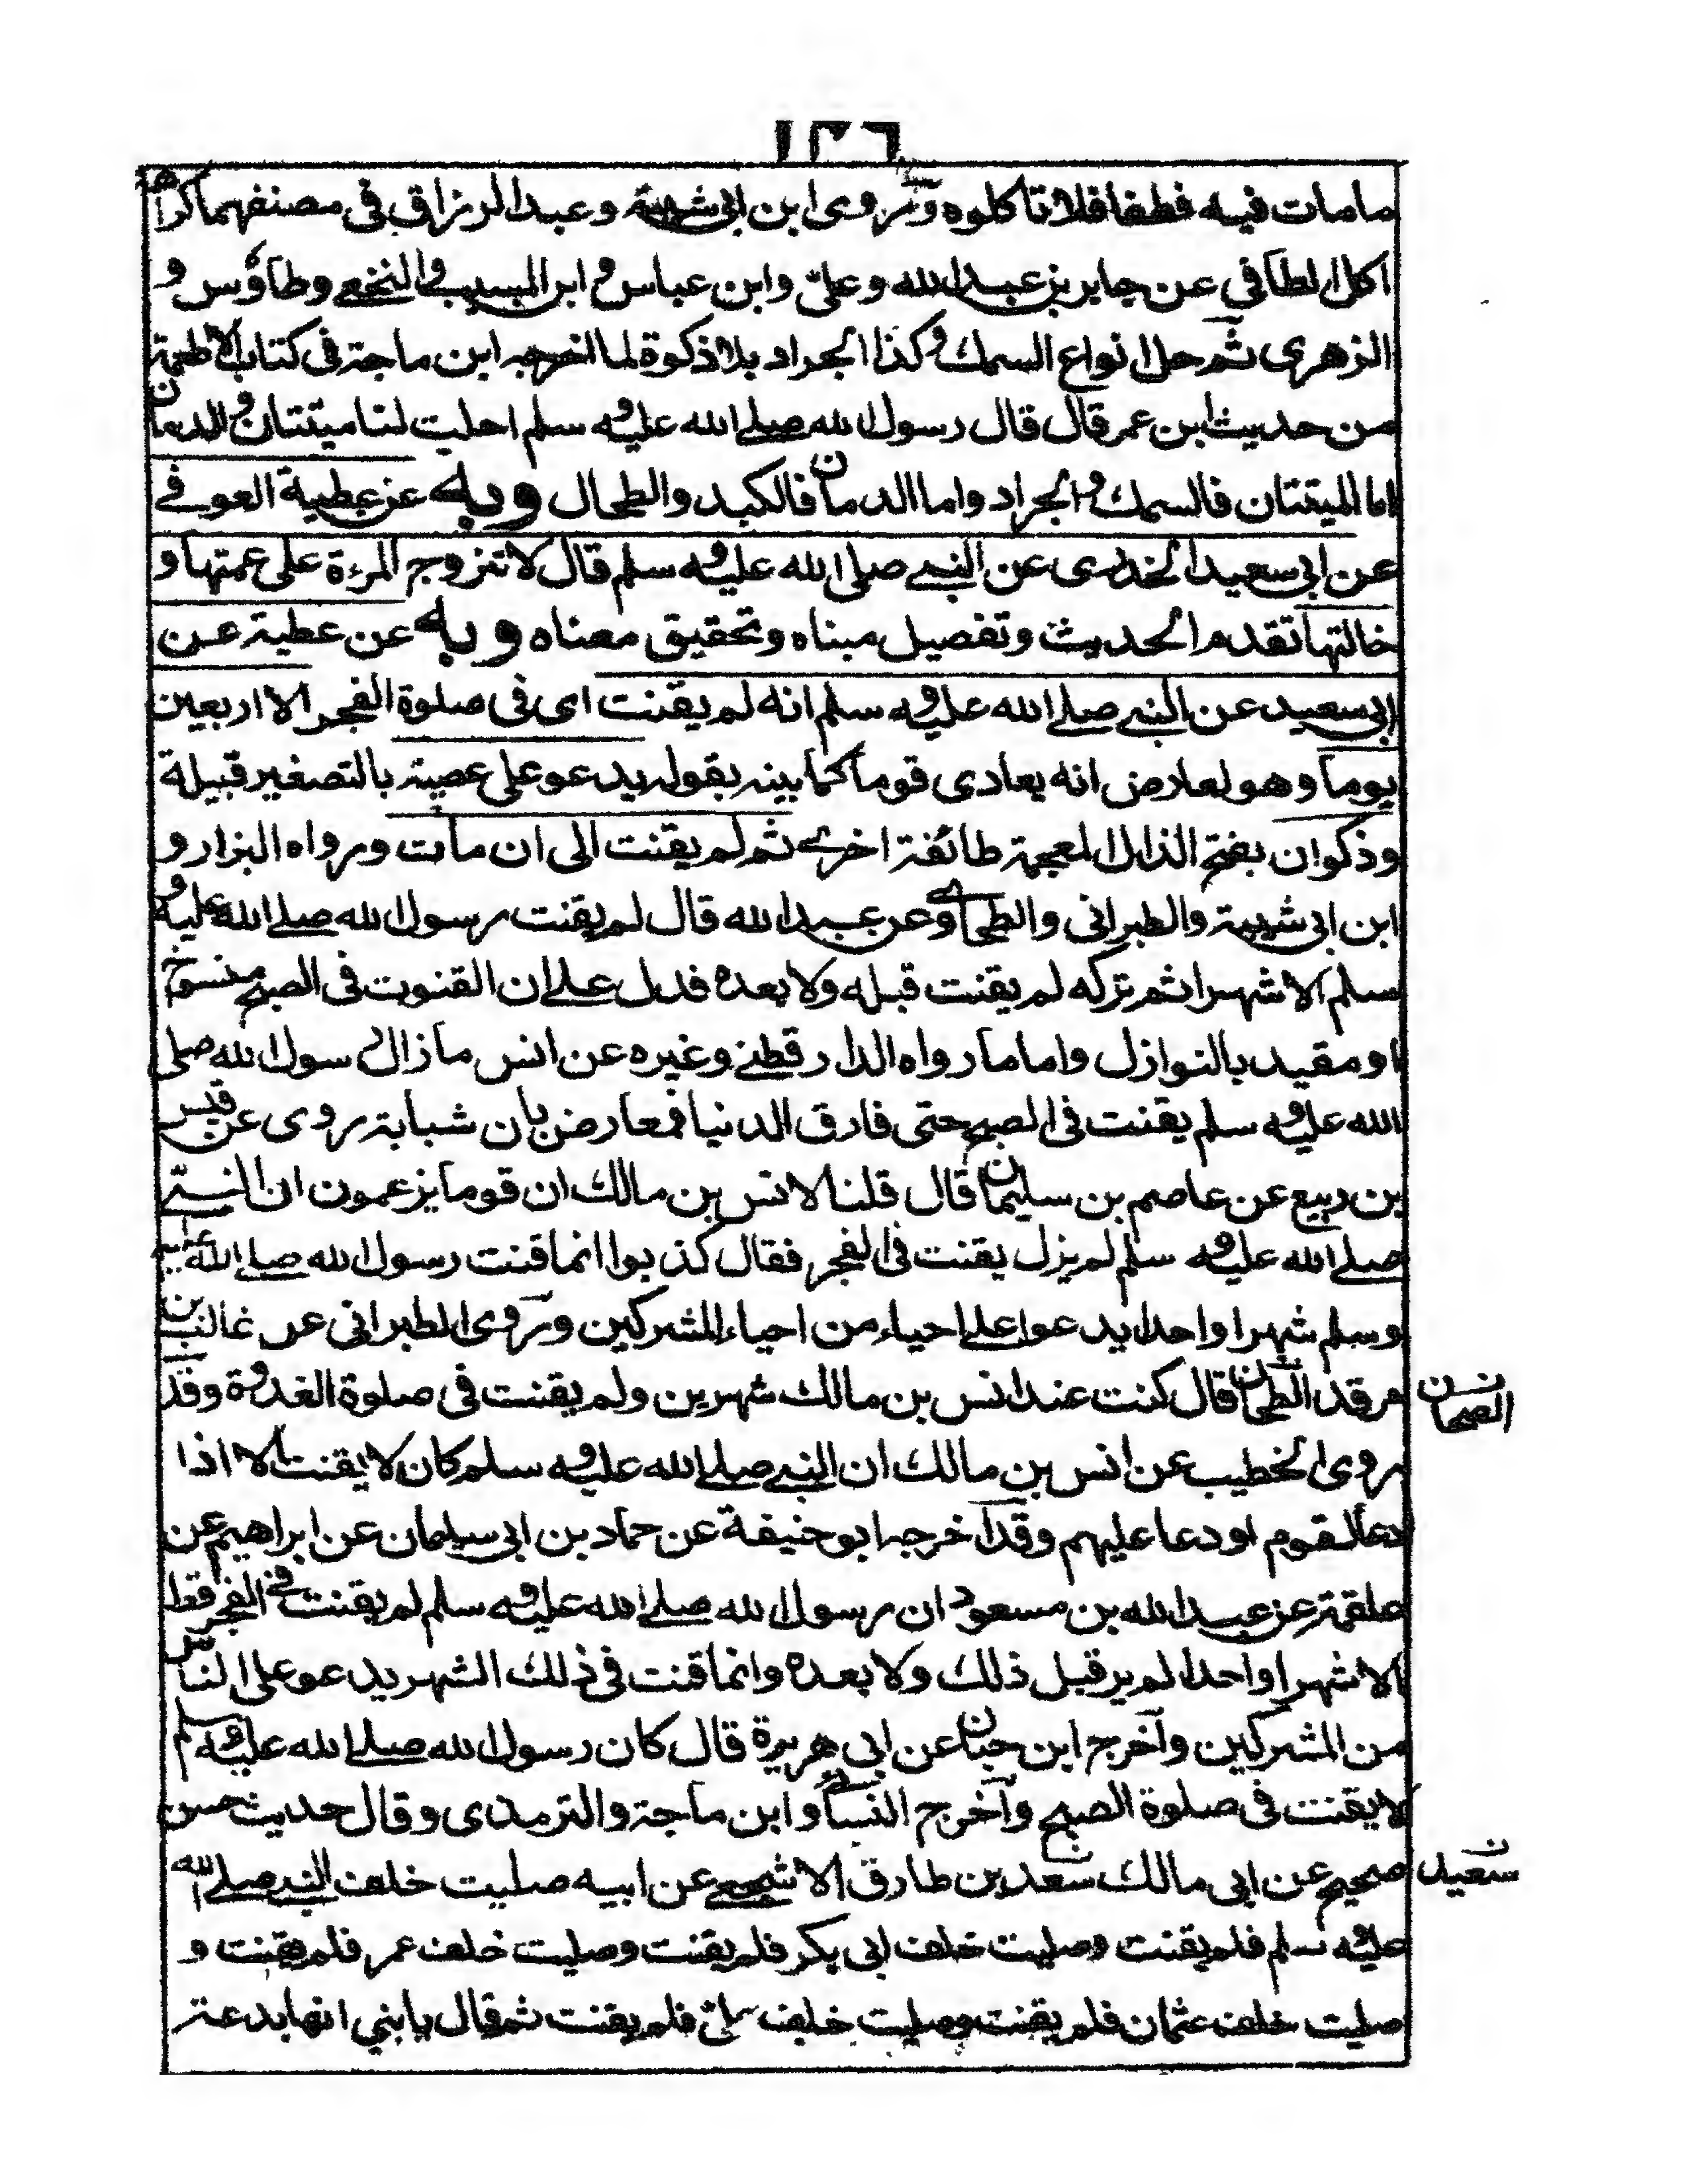 ١٣٦
ما مات فيه فطفا فلا تاكلوه وروى ابن ابى شيبة وعبد الرزاق فى مصنفهما كراهة
اكل الطافي عن جابر بن عبد الله وعلىّ وابن عباس وابن المسيب والنخعي وطاؤس و
الزهرى ثم حل انواع السمك وكذا الجراد بلا ذكوة لما اخرجه ابن ماجة فى كتاب الاطعمة
من حديث ابن عمر قال قال رسول الله صلے الله عليه وسلم احلت لنا ميتتان والدمان
اما الميتتان فالسمك والجراد واما الدمان فالكبد والطحال وبه عن عطية العوفے
عن ابى سعيد الخدرى عن النبے صلى الله عليه وسلم قال لا تزوج المرءة على عمتها و
خالتها تقدم الحديث وتفصيل مبناه وتحقيق معناه وبه عن عطية عن
ابى سعيد عن النبے صلے الله عليه وسلم انه لم يقنت اى فى صلوة الفجر الا اربعين
يوما وهو لعارض انه يعادى قوما كما بينه بقوله يدعو على عصية بالتصغير قبيلة
وذكوان بفتح الذال المعجمة طائفة اخرے ثم لم يقنت الى ان مات ورواه البزار و
ابن ابى شيبة والطبرانى والطحاوے عن عبد الله قال لم يقنت رسول الله صلے الله عليه و
سلم الا شهرا ثم تركه لم يقنت قبله ولا بعده فدل علے ان القنوت فى الصبح منسوخ
او مقيد بالنوازل واما ما رواه الدارقطنے وغيره عن انس ما زال رسول الله صلى
الله عليه وسلم يقنت فى الصبح حتى فارق الدنيا فمعارض بان شبابة روى عن قيس
بن ربيع عن عاصم بن سليمان قال قلنا لانس بن مالك ان قوما يزعمون ان النبے
صلے الله عليه وسلم لم يزل يقنت فى الفجر فقال كذبوا انما قنت رسول الله صلے الله عليه
وسلم شهرا واحدا يدعوا علے احياء من احياء المشركين وروى الطبرانى عن غالب بن
فرقد الطحان قال كنت عند انس بن مالك شهرين ولم يقنت فى صلوة الغدوة وقد
الصحان ن
روى الخطيب عن انس بن مالك ان النبے صلے الله عليه وسلم كان لا يقنت الا اذا
دعا لقوم او دعا عليهم وقد اخرجه ابو حنيفة عن حماد بن ابى سليمان عن ابراهيم عن
علقمة عن عبد الله بن مسعود ان رسول الله صلے الله عليه وسلم لم يقنت فے الفجر قط
الا شهرا واحدا لم ير قبل ذلك ولا بعده وانما قنت فى ذلك الشهر يدعو على الناس
من المشركين وآخرج ابن حبان عن ابى هريرة قال كان رسول الله صلے الله عليه وسلم
لا يقنت فى صلوة الصبح وآخرج النسائے وابن ماجة والترمذى وقال حديث حسن
صحيح عن ابى مالك سعد بن طارق الاشجعے عن ابيه صليت خلف النبے صلے الله
سعيد ن
عليه وسلم فلم يقنت وصليت خلف ابى بكر فلم يقنت وصليت خلف عمر فلم يقنت و
صليت خلف عثمان فلم يقنت وصليت خلف علىّ فلم يقنت ثم قال يا بني انها بدعة